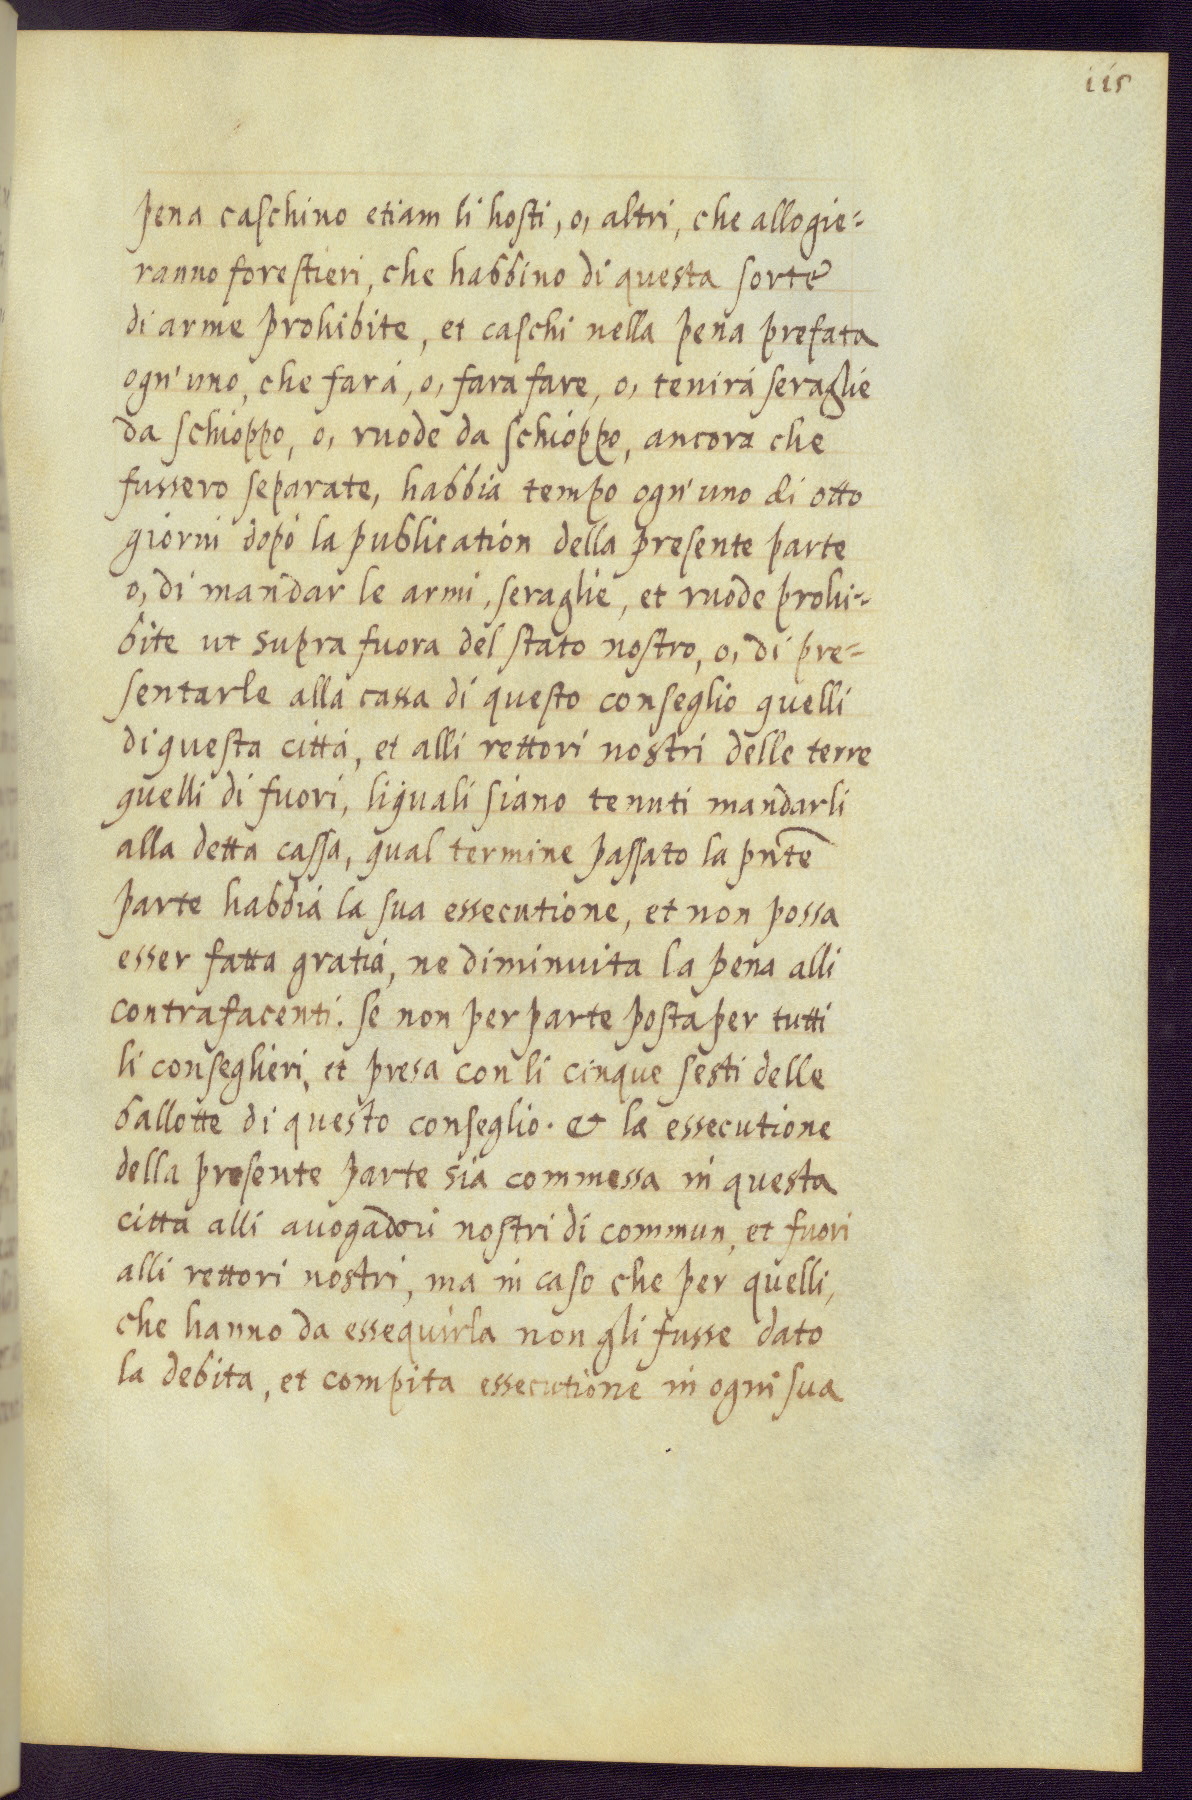 115
pena caschino etiam li hosti, o, altri, che allogie=
ranno forestieri, che habbino di questa sorte
di arme prohibite, et caschi nella pena prefata
ogn'uno, che farà, o, fara fare, o, tenirà seraglie
da schioppo, o, ruode da schioppo, ancora che
fussero separate, habbia tempo ogn'uno di otto
giorni dopò la publication della presente parte
o, di mandar le armi, seraglie, et ruode prohi=
bite ut supra fuora del stato nostro, o, di pre=
sentarle alla cassa di questo conseglio quelli
di questa città, et alli rettori nostri delle terre
quelli di fuori, liquali siano tenuti mandarli
alla detta cassa, qual termine passato la pnte
parte habbia la sua essecutione, et non possa
esser fatta gratia, ne diminuita la pena alli
contrafacenti. se non per parte posta per tutti
li conseglieri, et presa con li cinque sesti delle
ballotte di questo conseglio. & la essecutione
della presente parte sia commessa in questa
città alli auogadori nostri di commun, et fuori
alli rettori nostri, ma in caso che per quelli,
che hanno da essequirla non gli fusse dato
la debita, et compita essecutione in ogni sua